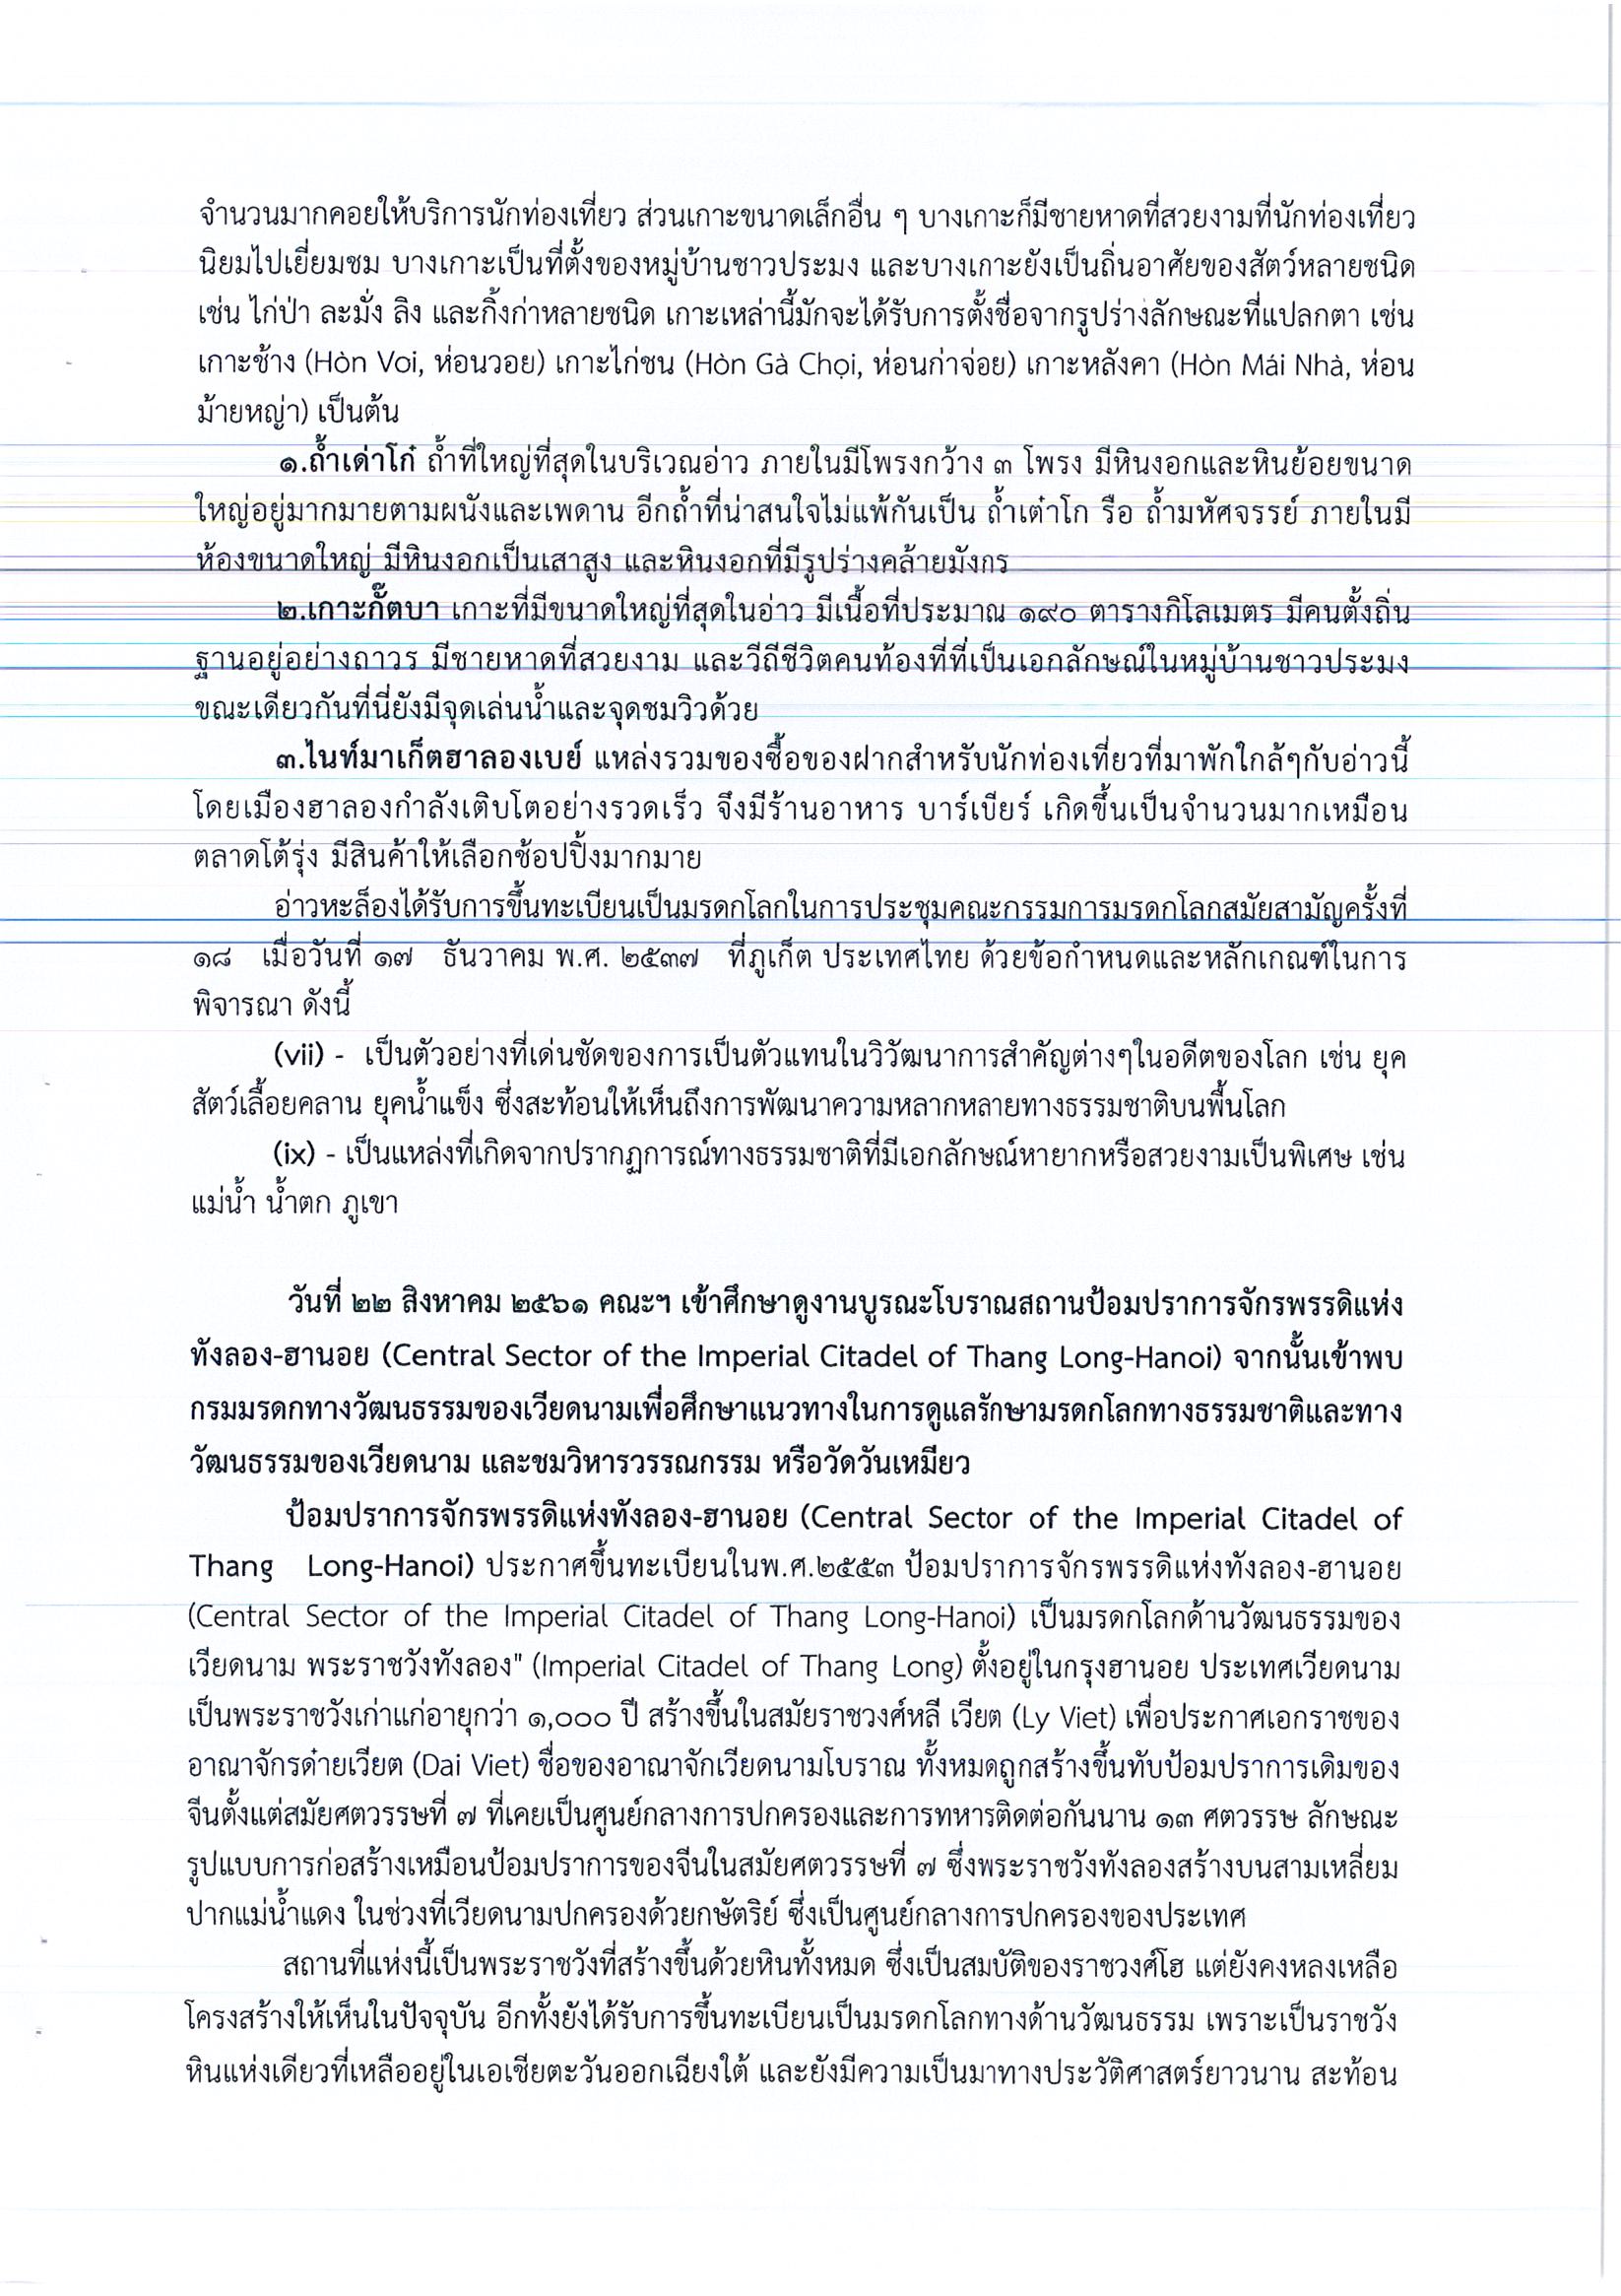 จำนวนมากคอยให้บริการนักท่องเที่ยว ส่วนเกาะขนาดเล็กอื่น ๆ บางเกาะก็มีชายหาดที่สวยงามที่นักท่องเที่ยว
นิยมไปเยี่ยมชม บางเกาะเป็นที่ตั้งของหมู่บ้านชาวประมง และบางเกาะยังเป็นถิ่นอาศัยของสัตว์หลายชนิด
เช่น ไก่ป่า ละมั่ง ลิง และกิ้งก่าหลายชนิด เกาะเหล่านี้มักจะได้รับการตั้งชื่อจากรูปร่างลักษณะที่แปลกตา เช่น
เกาะช้าง (Hòn Voi, ห่อนวอย) เกาะไก่ชน (Hòn Gà Chọi, ห่อนก่าจ่อย) เกาะหลังคา (Hòn Mái Nhà, ห่อน
ม้ายหญ่า) เป็นต้น
๑.ถ้ำเด่าโก๋ ถ้ำที่ใหญ่ที่สุดในบริเวณอ่าว ภายในมีโพรงกว้าง ๓ โพรง มีหินงอกและหินย้อยขนาด
ใหญ่อยู่มากมายตามผนังและเพดาน อีกถ้ำที่น่าสนใจไม่แพ้กันเป็น ถ้ำเต๋าโก รือ ถ้ำมหัศจรรย์ ภายในมี
ห้องขนาดใหญ่ มีหินงอกเป็นเสาสูง และหินงอกที่มีรูปร่างคล้ายมังกร
๒.เกาะกั๊ตบา เกาะที่มีขนาดใหญ่ที่สุดในอ่าว มีเนื้อที่ประมาณ ๑๙๐ ตารางกิโลเมตร มีคนตั้งถิ่น
ฐานอยู่อย่างถาวร มีชายหาดที่สวยงาม และวีถีชีวิตคนท้องที่ที่เป็นเอกลักษณ์ในหมู่บ้านชาวประมง
ขณะเดียวกันที่นี่ยังมีจุดเล่นน้ำและจุดชมวิวด้วย
๓.ไนท์มาเก็ตฮาลองเบย์ แหล่งรวมของซื้อของฝากสำหรับนักท่องเที่ยวที่มาพักใกล้ๆกับอ่าวนี้
โดยเมืองฮาลองกำลังเติบโตอย่างรวดเร็ว จึงมีร้านอาหาร บาร์เบียร์ เกิดขึ้นเป็นจำนวนมากเหมือน
ตลาดโต้รุ่ง มีสินค้าให้เลือกช้อปปิ้งมากมาย
อ่าวหะล็องได้รับการขึ้นทะเบียนเป็นมรดกโลกในการประชุมคณะกรรมการมรดกโลกสมัยสามัญครั้งที่
๑๘ เมื่อวันที่ ๑๗ ธันวาคม พ.ศ. ๒๕๓๗ ที่ภูเก็ต ประเทศไทย ด้วยข้อกำหนดและหลักเกณฑ์ในการ
พิจารณา ดังนี้
(vii) - เป็นตัวอย่างที่เด่นชัดของการเป็นตัวแทนในวิวัฒนาการสำคัญต่างๆในอดีตของโลก เช่น ยุค
สัตว์เลื้อยคลาน ยุคน้ำแข็ง ซึ่งสะท้อนให้เห็นถึงการพัฒนาความหลากหลายทางธรรมชาติบนพื้นโลก
(ix) - เป็นแหล่งที่เกิดจากปรากฏการณ์ทางธรรมชาติที่มีเอกลักษณ์หายากหรือสวยงามเป็นพิเศษ เช่น
แม่น้ำ น้ำตก ภูเขา
วันที่ ๒๒ สิงหาคม ๒๕๖๑ คณะฯ เข้าศึกษาดูงานบูรณะโบราณสถานป้อมปราการจักรพรรดิแห่ง
ทังลอง-ฮานอย (Central Sector of the Imperial Citadel of Thang Long-Hanoi) จากนั้นเข้าพบ
กรมมรดกทางวัฒนธรรมของเวียดนามเพื่อศึกษาแนวทางในการดูแลรักษามรดกโลกทางธรรมชาติและทาง
วัฒนธรรมของเวียดนาม และชมวิหารวรรณกรรม หรือวัดวันเหมียว
ป้อมปราการจักรพรรดิแห่งทังลอง-ฮานอย (Central Sector of the Imperial Citadel of
Thang Long-Hanoi) ประกาศขึ้นทะเบียนในพ.ศ.๒๕๕๓ ป้อมปราการจักรพรรดิแห่งทังลอง-ฮานอย
(Central Sector of the Imperial Citadel of Thang Long-Hanoi) เป็นมรดกโลกด้านวัฒนธรรมของ
เวียดนาม พระราชวังทังลอง" (Imperial Citadel of Thang Long) ตั้งอยู่ในกรุงฮานอย ประเทศเวียดนาม
เป็นพระราชวังเก่าแก่อายุกว่า ๑,๐๐๐ ปี สร้างขึ้นในสมัยราชวงศ์หลี เวียต (Ly Viet) เพื่อประกาศเอกราชของ
อาณาจักรด๋ายเวียต (Dai Viet) ชื่อของอาณาจักเวียดนามโบราณ ทั้งหมดถูกสร้างขึ้นทับป้อมปราการเดิมของ
จีนตั้งแต่สมัยศตวรรษที่ ๗ ที่เคยเป็นศูนย์กลางการปกครองและการทหารติดต่อกันนาน ๑๓ ศตวรรษ ลักษณะ
รูปแบบการก่อสร้างเหมือนป้อมปราการของจีนในสมัยศตวรรษที่ ๗ ซึ่งพระราชวังทังลองสร้างบนสามเหลี่ยม
ปากแม่น้ำแดง ในช่วงที่เวียดนามปกครองด้วยกษัตริย์ ซึ่งเป็นศูนย์กลางการปกครองของประเทศ
สถานที่แห่งนี้เป็นพระราชวังที่สร้างขึ้นด้วยหินทั้งหมด ซึ่งเป็นสมบัติของราชวงศ์โฮ แต่ยังคงหลงเหลือ
โครงสร้างให้เห็นในปัจจุบัน อีกทั้งยังได้รับการขึ้นทะเบียนเป็นมรดกโลกทางด้านวัฒนธรรม เพราะเป็นราชวัง
หินแห่งเดียวที่เหลืออยู่ในเอเชียตะวันออกเฉียงใต้ และยังมีความเป็นมาทางประวัติศาสตร์ยาวนาน สะท้อน